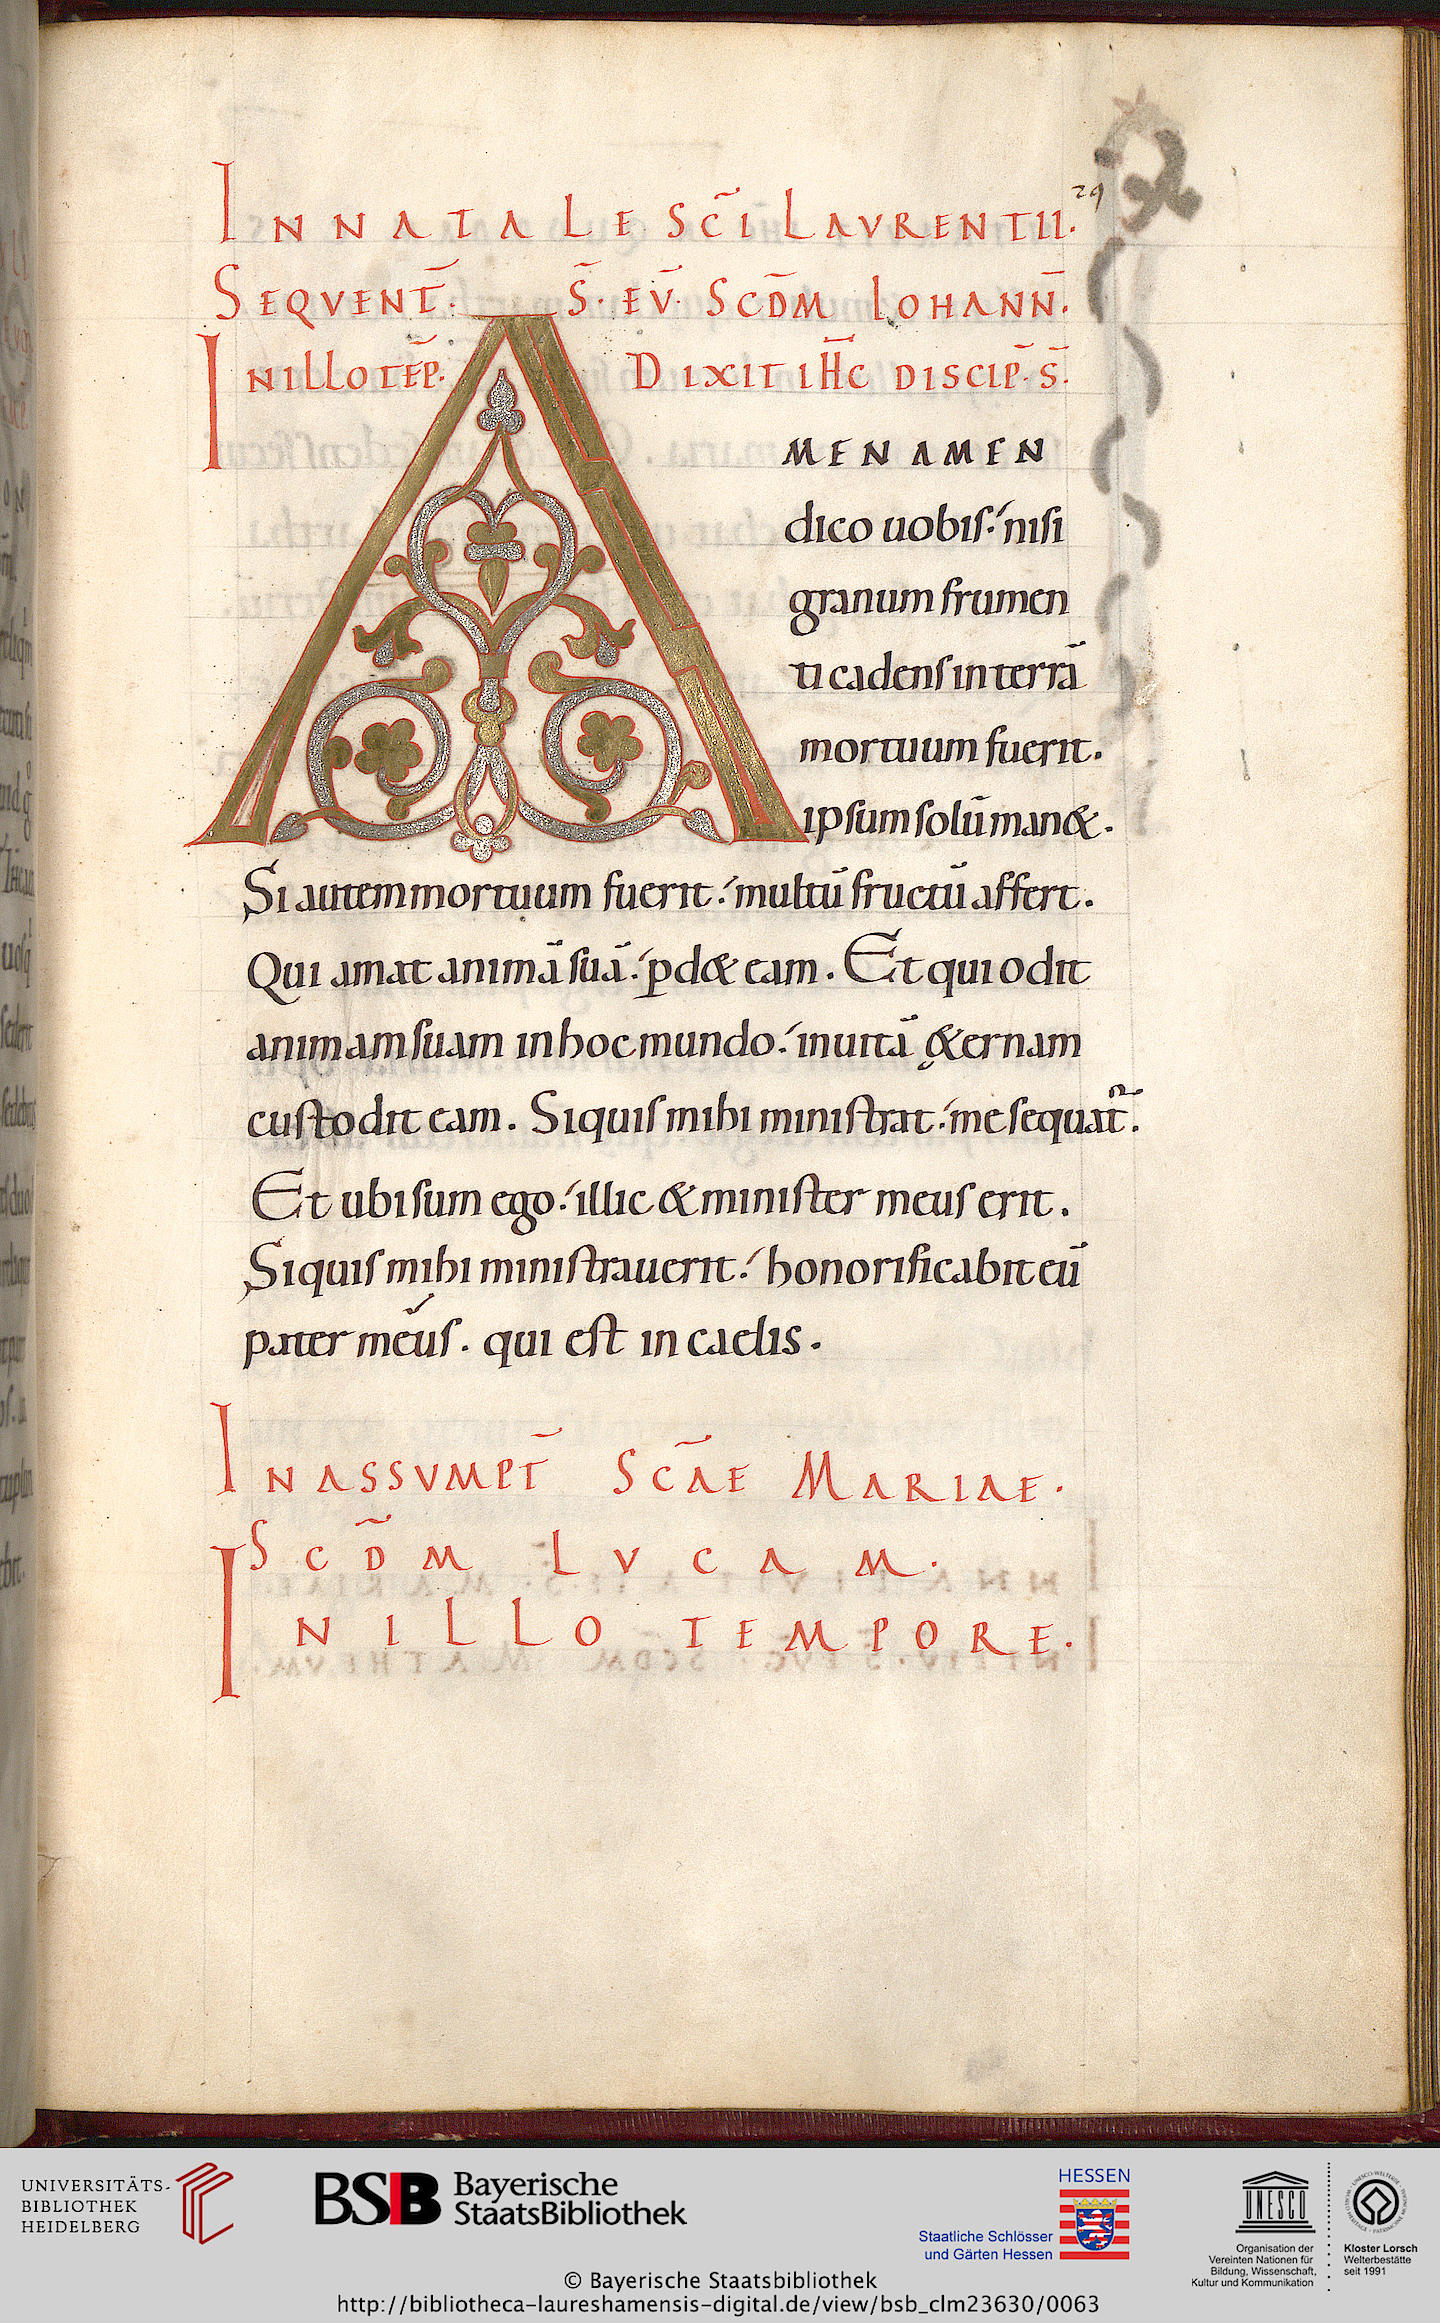 29
IN NATALE SC̅I LAVRENTII.
SEQVENT̅. S̅. EV̅. SCD̅M IOHANN̅.
IN ILLO TE̅P̅. DIXIT IH̅C DISCIP̅. S̅.
AMEN AMEN
dico uobis: nisi
granum frumen
ti cadens in terrā
mortuum fuerit.
ipsum solū man&.
Si autem mortuum fuerit: multū fructū affert.
Qui amat animā suā: p̱d& eam. Et qui odit
animam suam in hoc mundo: in uitā &̨ernam
custodit eam. Si quis mihi ministrat: me sequat̅.
Et ubi sum ego: illic & minister meus erit.
Si quis mihi ministrauerit: honorificabit eū
pater meus. qui est in caelis.
IN ASSVMPT̅ SC̅AE MARIAE.
SCD̅M LVCAM.
IN ILLO TEMPORE.
UNIVERSITÄTS-
BIBLIOTHEK
HEIDELBERG
BSB Bayerische
StaatsBibliothek
HESSEN
Staatliche Schlösser
und Gärten Hessen
UNESCO
Organisation der
Vereinten Nationen für
Bildung, Wissenschaft,
Kultur und Kommunikation
Kloster Lorsch
Welterbestätte
seit 1991
© Bayerische Staatsbibliothek
http://bibliotheca-laureshamensis-digital.de/view/bsb_clm23630/0063